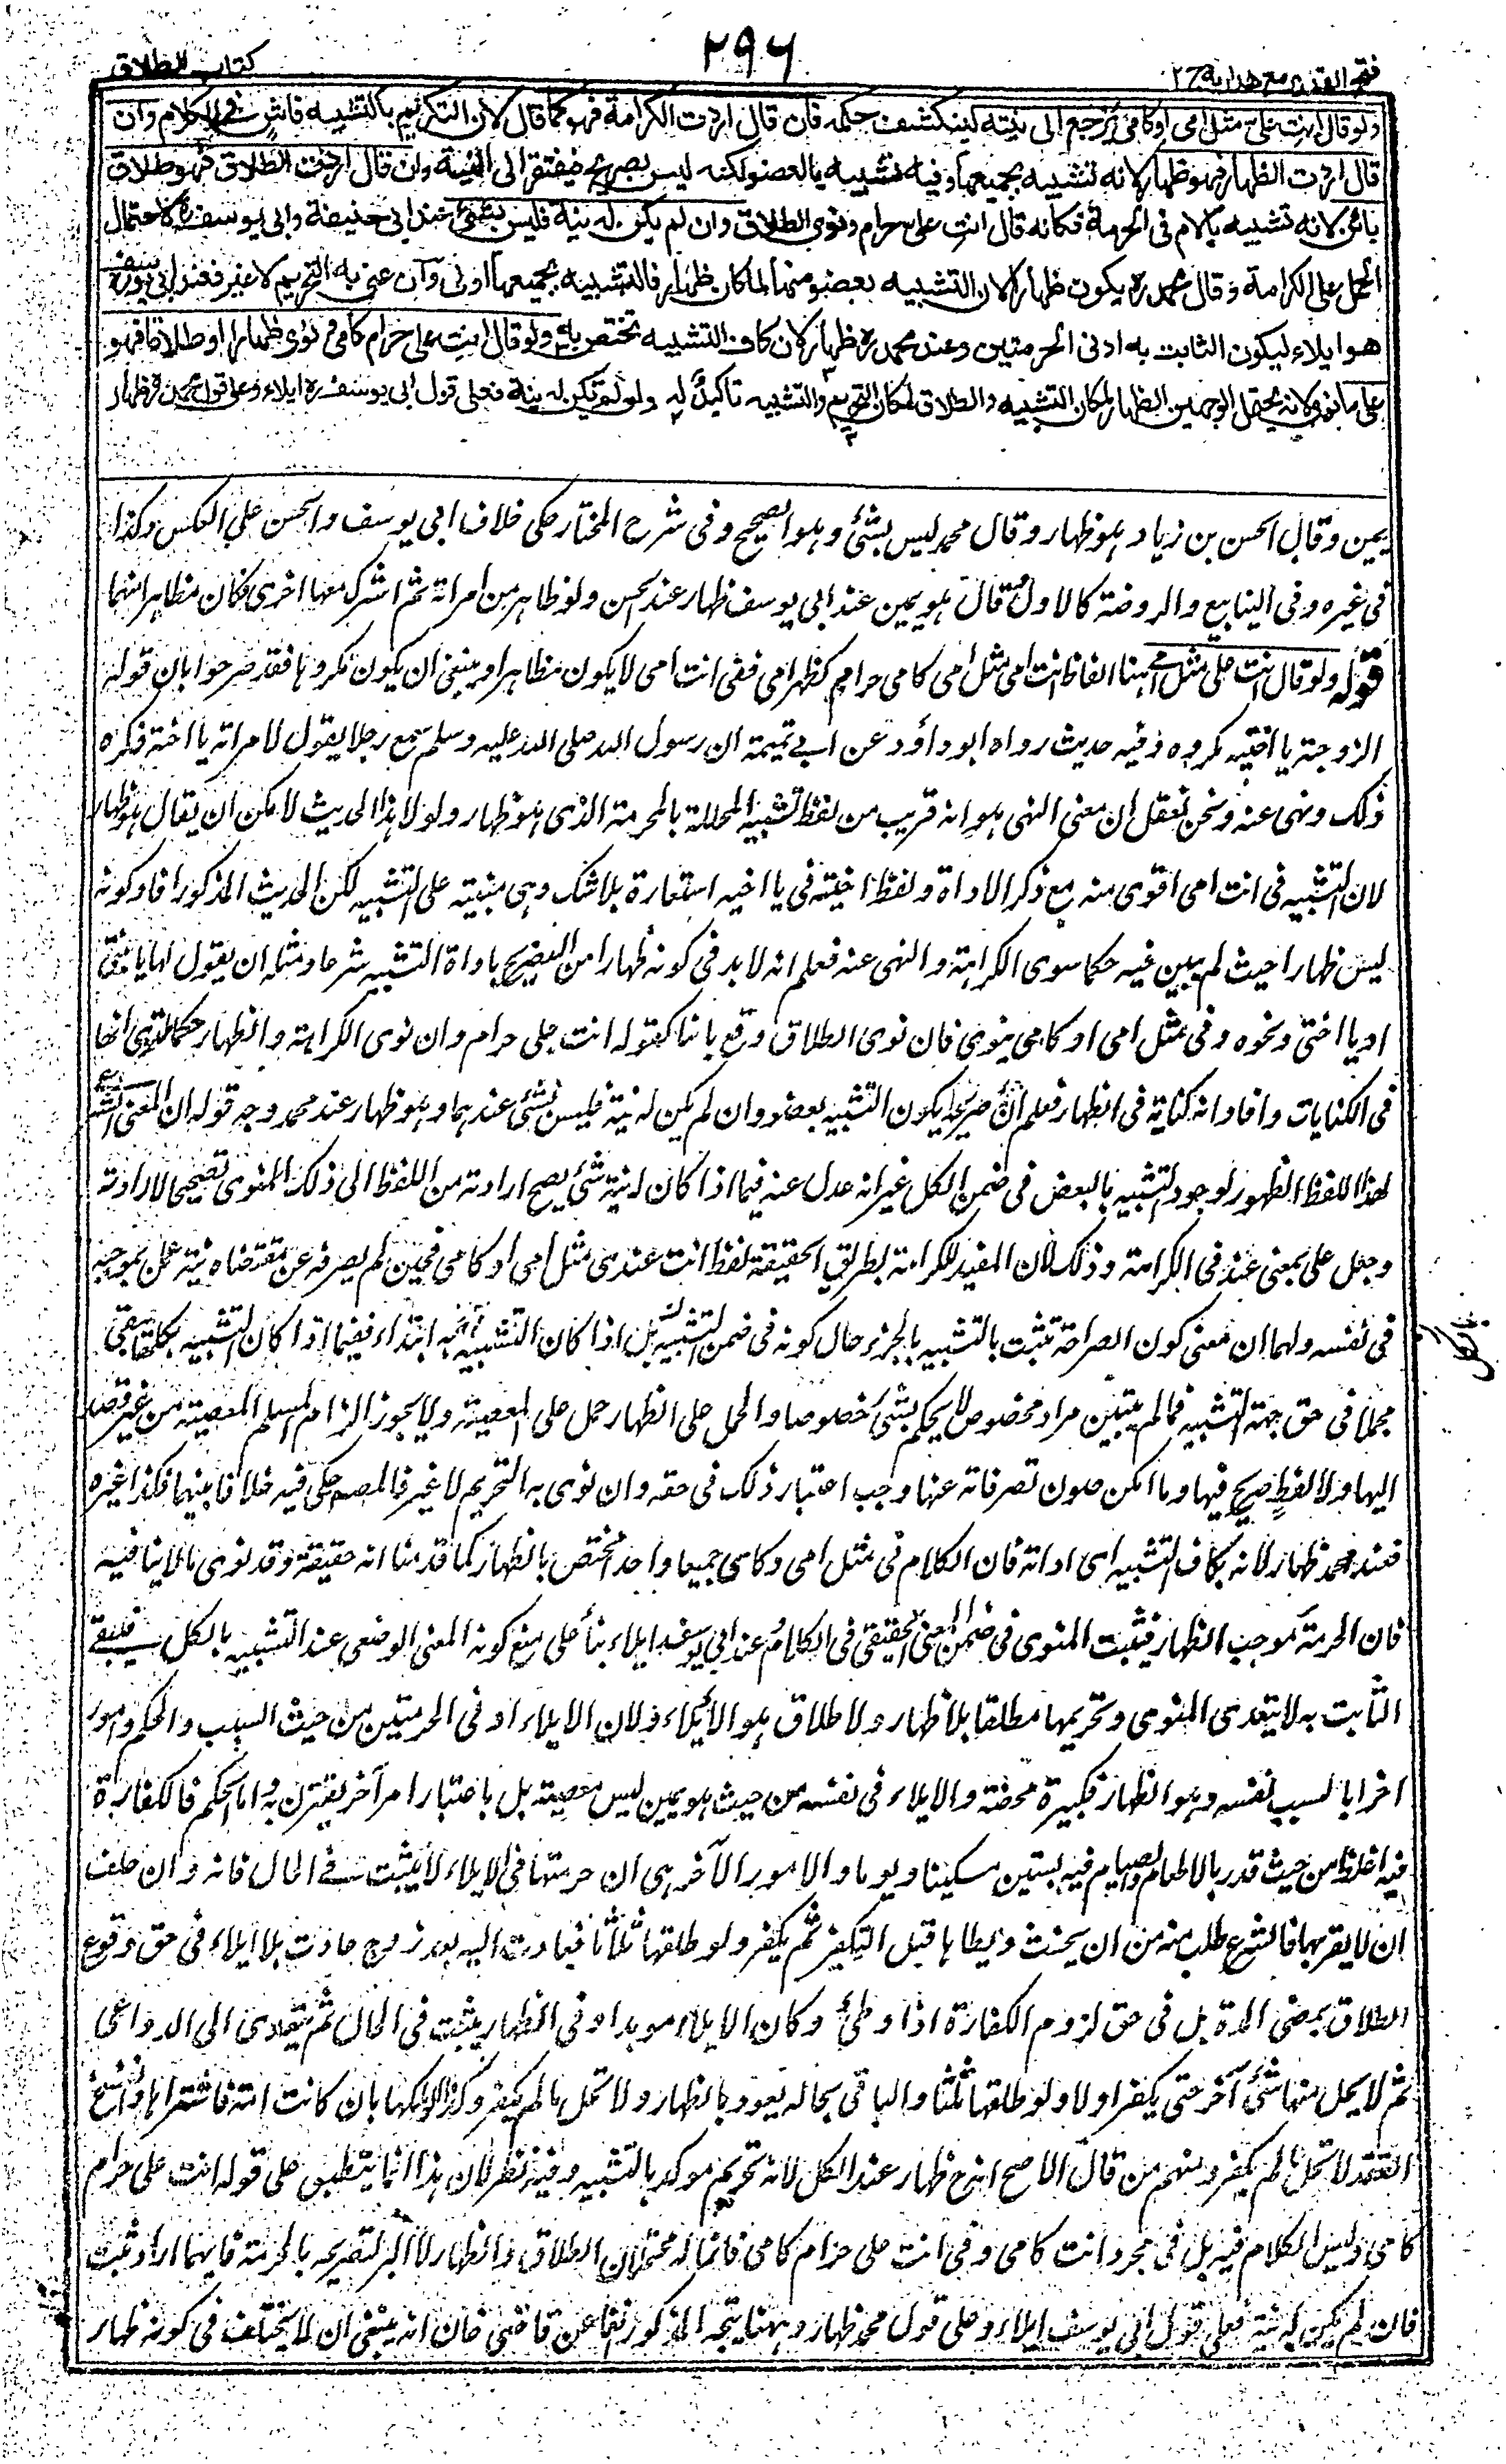 فتح القدير مع هداية ج ٢
٢٩٦
كتاب الطلاق
ولو قال انت على مثل امى او كامى يرجع الى نيته لينكشف حكمه فان قال اردت الكرامة فهو كما قال لان التكريم بالتشبيه فاشٍ فى الكلام وان
قال اردت الظهار فهو ظهار لانه تشبيه بجميعها وفيه تشبيه بالعضو لكنه ليس بصريح فيفتقر الى النية وان قال اردت الطلاق فهو طلاق
بائن لانه تشبيه بالام فى الحرمة فكانه قال انت على حرام ونوى الطلاق وان لم يكن له نية فليس بشئ عند ابى حنيفة وابى يوسف رح لاحتمال
الحمل على الكرامة وقال محمد رح يكون ظهارا لان التشبيه بعضو منها لما كان ظهارا فالتشبيه بجميعها اولى وان عنى به التحريم لا غير فعند ابى يوسف رح
هو ايلاء ليكون الثابت به ادنى الحرمتين وعند محمد رح ظهار لان كاف التشبيه تختص به ولو قال انت على حرام كامى ونوى ظهارا او طلاقا فهو
على ما نوى لانه يحتمل الوجهين الظهار لمكان التشبيه والطلاق لمكان التحريم والتشبيه تاكيدٌ له ولو لم تكن له نية فعلى قول ابى يوسف رح ايلاء وعلى قول محمد رح ظهار
يمين وقال الحسن بن زياد هو ظهار وقال محمد ليس بشئ وهو الصحيح وفى شرح المختار حكى خلاف ابى يوسف والحسن على العكس وكذا
فى غيره وفى الينابيع والروضة كالاول قال هو يمين عند ابى يوسف ظهار عند الحسن ولو ظاهر من امراته ثم اشرك معها اخرى كان مظاهرا منهما
قوله ولو قال انت على مثل امى هنا الفاظ انت امى مثل امى كامى حرام كظهر امى ففى انت امى لا يكون مظاهرا وينبغى ان يكون مكروها فقد صرحوا بان قوله
الزوجته يا اخيه مكروه وفيه حديث رواه ابو داؤد عن ابى تميمة ان رسول الله صلى الله عليه وسلم سمع رجلا يقول لامراته يا اخية فكره
ذلك ونهى عنه ونحن نعقل ان معنى النهى هو انه قريب من لفظ تشبيه المحللة بالمحرمة الذى هو ظهار ولولا هذا الحديث لامكن ان يقال هو ظهار
لان التشبيه فى انت امى اقوى منه مع ذكر الاداة ولفظ اخية فى يا اخيه استعارة بلا شك وهى مبنية على التشبيه لكن الحديث المذكور افاد كونه
ليس ظهارا حيث لم يبين فيه حكما سوى الكراهة والنهى عنه فعلم انه لا بد فى كونه ظهارا من التصريح باداة التشبيه شرعا ومثله ان يقول لها يا بنتى
او يا اختى ونحوه وفى مثل امى او كامى ينوى فان نوى الطلاق وقع بائنا كقوله انت على حرام وان نوى الكرامة والظهار حكما نوى انها
فى الكنايات وافاد انه كناية فى الظهار فعلم ان صريحه يكون التشبيه بعضو وان لم يكن له نية فليس بشئ عندهما وهو ظهار عند محمد وجه قوله ان المعنى
لهذا اللفظ الظهور لوجود التشبيه بالبعض فى ضمن الكل غير انه عدل عنه فيما اذا كان له نية شئ يصح ارادته من اللفظ الى ذلك المنوى تصحيحا لارادته
وجعل على بمعنى عند فى الكرامة وذلك لان المفيد للكرامة بطريق الحقيقة لفظ انت عندى مثل امى او كامى فحين لم يصرفه عن مقتضاه نية عمل بموجبه
فى نفسه ولهما ان معنى كون الصراحة تثبت بالتشبيه بالجزء حال كونه فى ضمن التشبيه بل اذا كان التشبيه به ابتداء ففيما اذا كان التشبيه بكلها يبقى
مجملا فى حق جهة التشبيه فما لم يتبين مراد مخصوص لا يحكم بشئ خصوصا والحمل على الظهار حمل على المعصية ولا يجوز الزام المسلم المعصية من غير قصد
اليها ولا لفظٍ صريح فيها وما امكن صون تصرفاته عنها وجب اعتبار ذلك فى حقه وان نوى به التحريم لا غير فالمصـ حكى فيه خلافا بينهما فكذا غيره
فعند محمد ظهار لانه بكاف التشبيه اى اداته فان الكلام فى مثل امى وكامى جميعا واحد المختص بالظهار كما قدمنا انه حقيقة وقد نوى ما لا ينافيه
فان الحرمة موجب الظهار فيثبت المنوى فى ضمن المعنى الحقيقى فى الكلام وعند ابى يوسف ايلاء بناءً على منع كونه المعنى الوضعى عند التشبيه بالكل فيبقى
الثابت به لا يتعدى المنوى وتحريمها مطلقا بلا ظهار ولا طلاق هو الايلاء ولان الايلاء ادنى الحرمتين من حيث السبب والحكم وامور
اخر اما السبب نفسه وهو الظهار فكبيرة محضة والايلاء فى نفسه من حيث هو يمين ليس معصية بل باعتبار امر آخر يقترن به واما الحكم فالكفارة
فيه اغلظ من حيث قدر بالاطعام والصيام فيه بستين مسكينا ويوما والامور الآخر هى ان حرمتها فى الايلاء لا يثبت فى الحال فانه وان حلف
ان لا يقربها فالشرع طلب منه من ان يحنث ويطاها قبل التكفير ثم يكفر ولو طلقها ثلاثا فعادت اليه بعد زوج عادت بلا ايلاء فى حق وقوع
الطلاق بمضى المدة بل فى حق لزوم الكفارة اذا وطئ وكان الايلاء موبدا وفى الظهار يثبت فى الحال ثم يتعدى الى الدواعى
ثم لا يحل منها شئ آخر حتى يكفر اولا ولو طلقها ثلثا والباقى بحاله يعود بالظهار ولا تحل ما لم يكفر وكذا لو ملكها بان كانت امة فاشتراها وانفسخ
العقد لا تحل ما لم يكفر ومنهم من قال الاصح انه ظهار عند الكل لانه تحريم موكد بالتشبيه وفيه نظر لان هذا انما ينطبق على قوله انت على حرام
كامى وليس الكلام فيه بل فى مجرد انت كامى وفى انت على حرام كامى فانما له محتملان الطلاق والظهار لا البر لتصريحه بالحرمة فايهما اراد ثبت
فان لم يكن له نية فعلى قول ابى يوسف ايلاء وعلى قول محمد ظهار وههنا يتجه المذكور نقلا عن قاضى خان انه ينبغى ان لا يختلف فى كونه ظهار